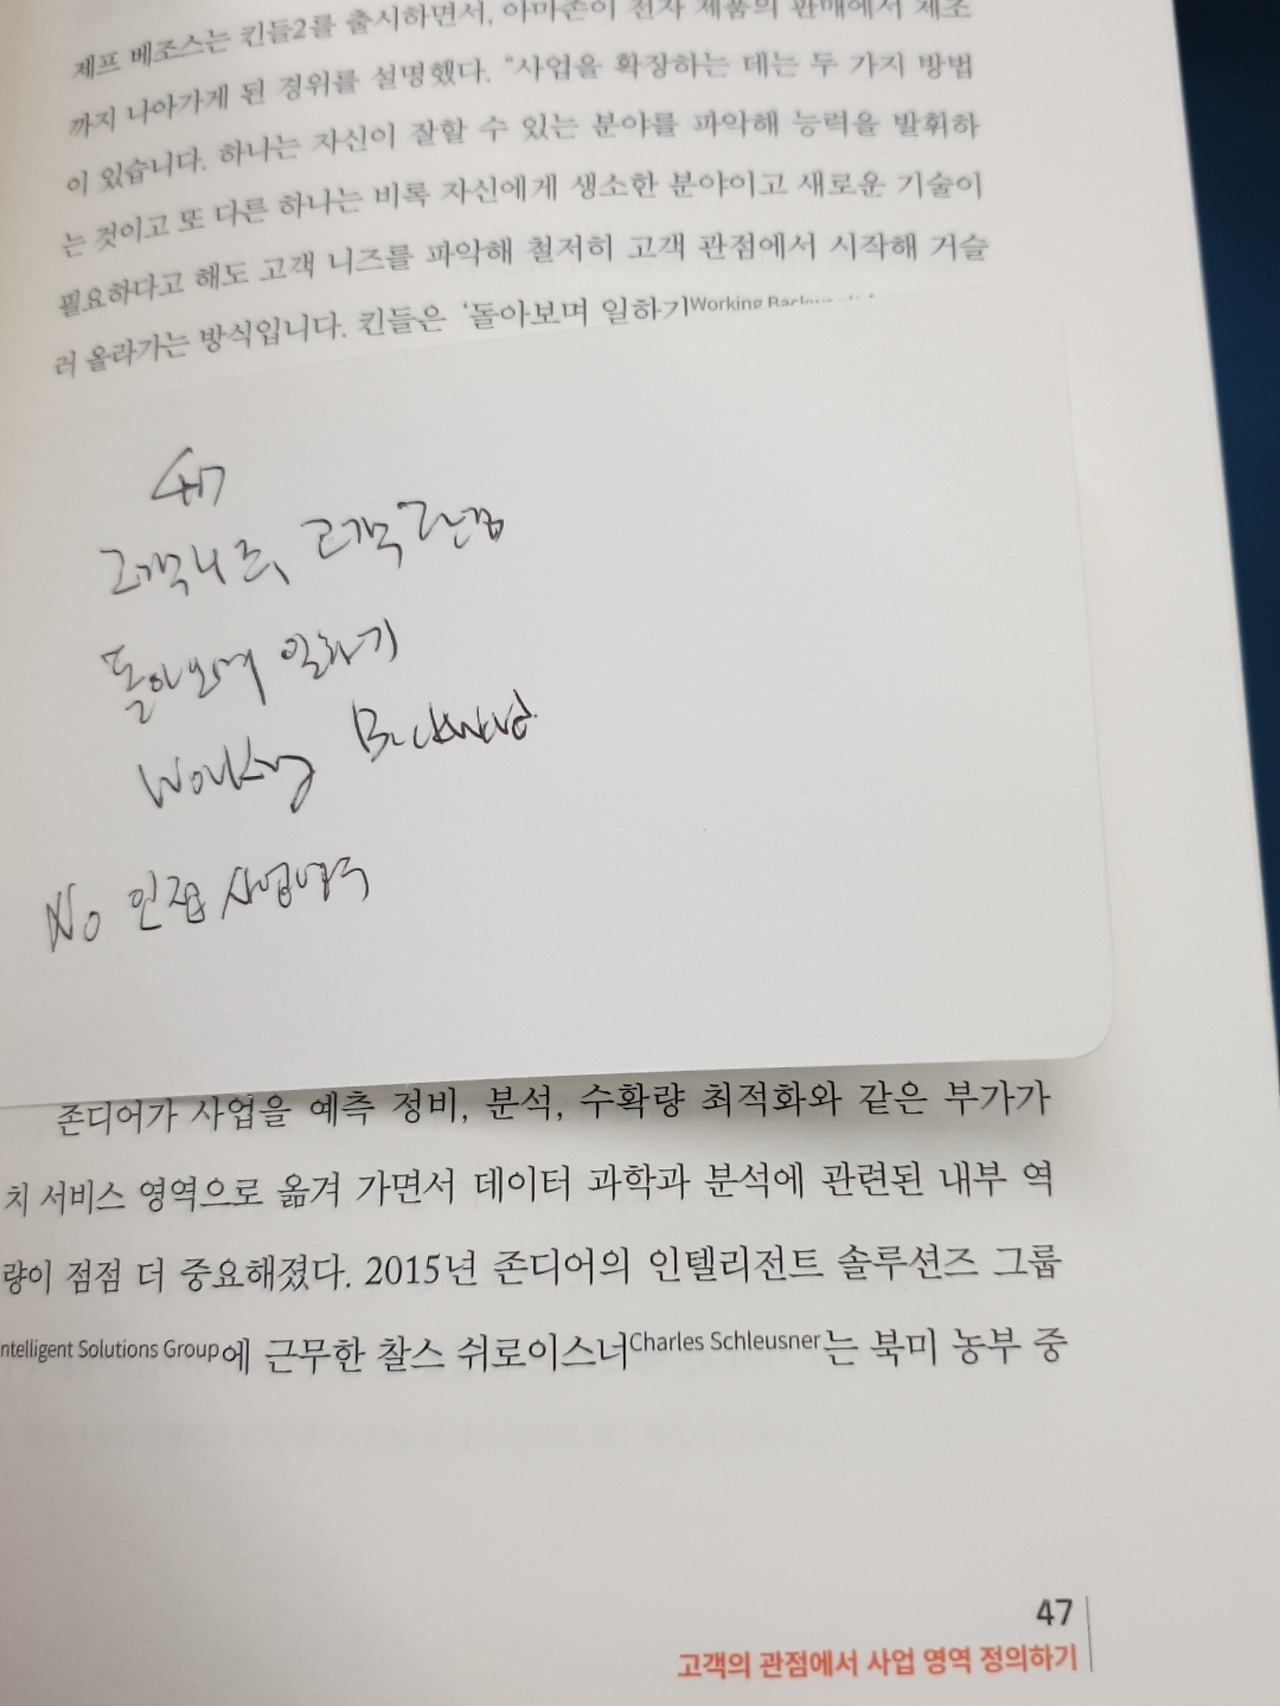 제프 베조스는 킨들2를 출시하면서, 아마존이 전자 제품의 판매에서 제조
까지 나아가게 된 경위를 설명했다. “사업을 확장하는 데는 두 가지 방법
이 있습니다. 하나는 자신이 잘할 수 있는 분야를 파악해 능력을 발휘하
는 것이고 또 다른 하나는 비록 자신에게 생소한 분야이고 새로운 기술이
필요하다고 해도 고객 니즈를 파악해 철저히 고객 관점에서 시작해 거슬
러 올라가는 방식입니다. 킨들은 ‘돌아보며 일하기Working
47
고객니즈, 고객관점
돌아보며 일하기
Working Backward
No 인접 사업영역
존디어가 사업을 예측 정비, 분석, 수확량 최적화와 같은 부가가
치 서비스 영역으로 옮겨 가면서 데이터 과학과 분석에 관련된 내부 역
량이 점점 더 중요해졌다. 2015년 존디어의 인텔리전트 솔루션즈 그룹
ntelligent Solutions Group에 근무한 찰스 쉬로이스너Charles Schleusner는 북미 농부 중
47
고객의 관점에서 사업 영역 정의하기